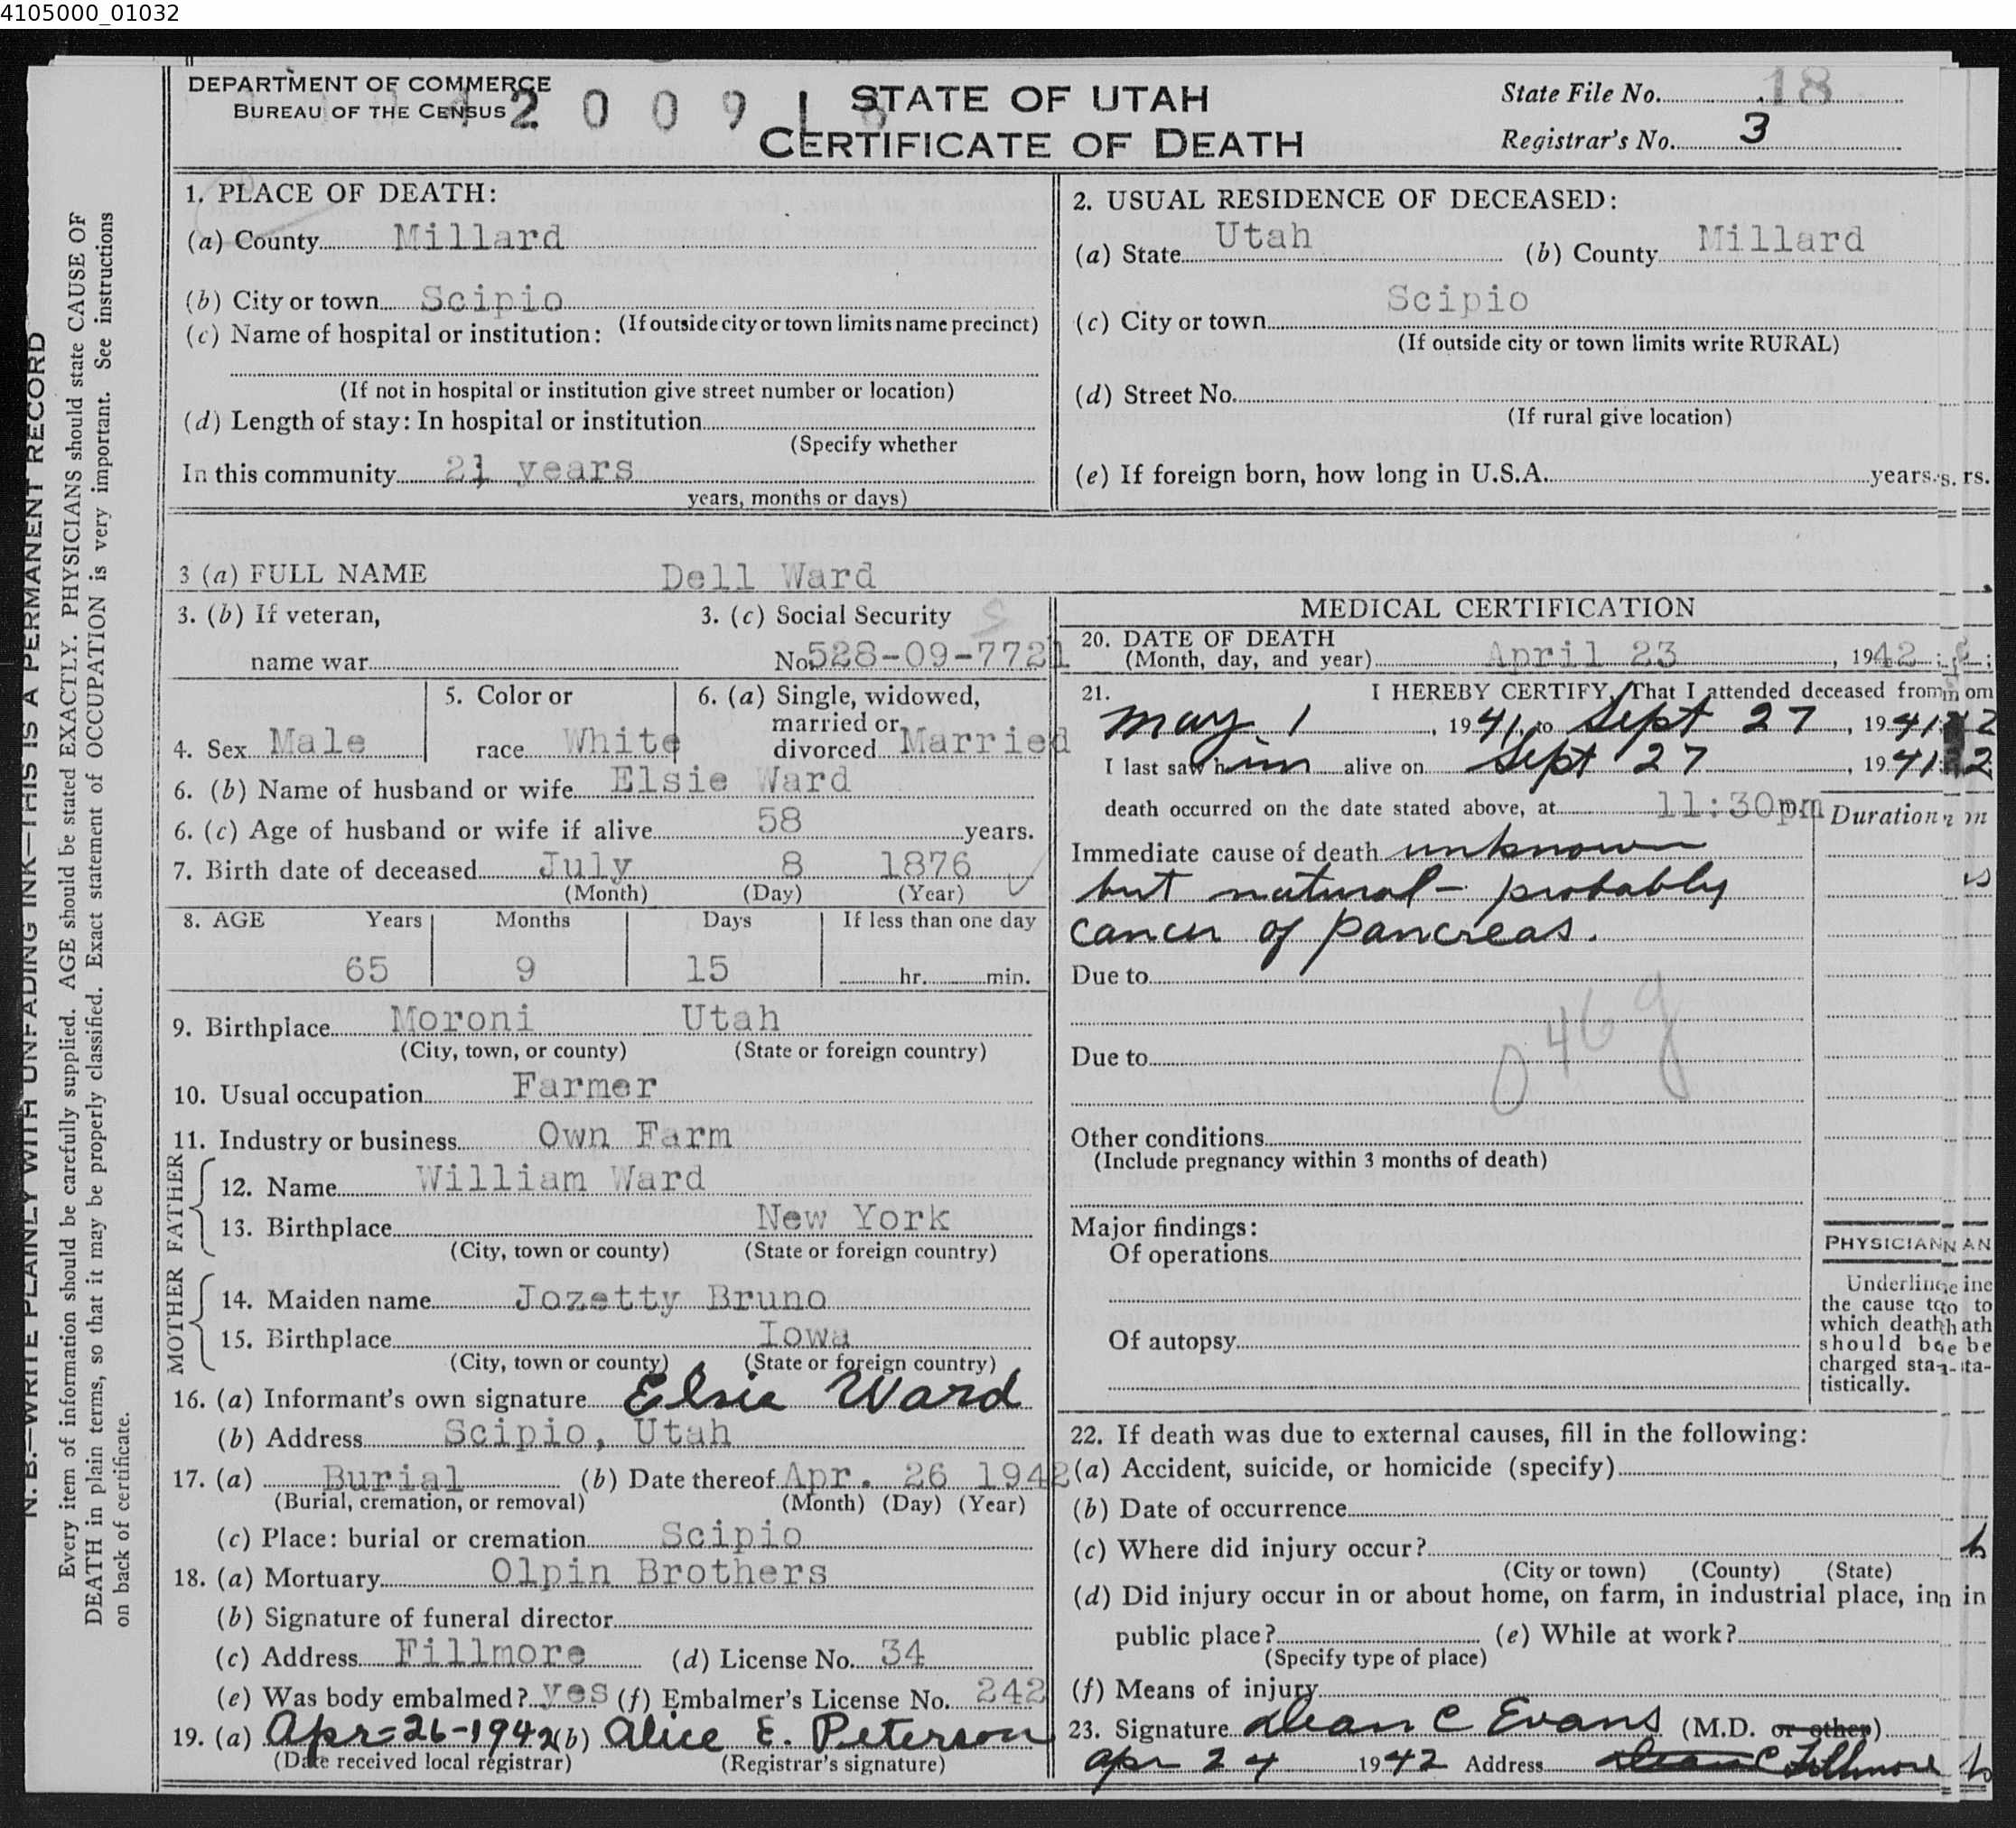 4105000_01032
DEPARTMENT OF COMMERCE
BUREAU OF THE CENSUS
2 0 0 9 1 8
STATE OF UTAH
CERTIFICATE OF DEATH
State File No. 18
Registrar's No. 3
1. PLACE OF DEATH:
(a) County Millard
(b) City or town Scipio
(If outside city or town limits name precinct)
(c) Name of hospital or institution:
(If not in hospital or institution give street number or location)
(d) Length of stay: In hospital or institution
(Specify whether
In this community 21 years
years, months or days)
2. USUAL RESIDENCE OF DECEASED:
(a) State Utah (b) County Millard
(c) City or town Scipio
(If outside city or town limits write RURAL)
(d) Street No.
(If rural give location)
(e) If foreign born, how long in U.S.A. years.
3 (a) FULL NAME Dell Ward
3. (b) If veteran,
name war
3. (c) Social Security
No. 528-09-7721
4. Sex Male
5. Color or
race White
6. (a) Single, widowed,
married or
divorced Married
6. (b) Name of husband or wife Elsie Ward
6. (c) Age of husband or wife if alive 58 years.
7. Birth date of deceased July 8 1876
(Month) (Day) (Year)
8. AGE Years Months Days If less than one day
65 9 15 hr. min.
9. Birthplace Moroni Utah
(City, town, or county) (State or foreign country)
10. Usual occupation Farmer
11. Industry or business Own Farm
FATHER
12. Name William Ward
13. Birthplace New York
(City, town or county) (State or foreign country)
MOTHER
14. Maiden name Jozetty Bruno
15. Birthplace Iowa
(City, town or county) (State or foreign country)
16. (a) Informant's own signature Elsie Ward
(b) Address Scipio, Utah
17. (a) Burial (b) Date thereof Apr. 26 1942
(Burial, cremation, or removal) (Month) (Day) (Year)
(c) Place: burial or cremation Scipio
18. (a) Mortuary Olpin Brothers
(b) Signature of funeral director
(c) Address Fillmore (d) License No. 34
(e) Was body embalmed? yes (f) Embalmer's License No. 242
19. (a) Apr-26-1942 (b) Alice E. Peterson
(Date received local registrar) (Registrar's signature)
MEDICAL CERTIFICATION
20. DATE OF DEATH
(Month, day, and year) April 23, 1942
21. I HEREBY CERTIFY, That I attended deceased from
May 1, 1941, to Sept 27, 1941
I last saw him alive on Sept 27, 1941
death occurred on the date stated above, at 11:30pm
Duration
Immediate cause of death unknown
but natural - probably
cancer of pancreas.
Due to
046g
Due to
Other conditions
(Include pregnancy within 3 months of death)
Major findings:
Of operations
Of autopsy
PHYSICIAN
Underline
the cause to
which death
should be
charged sta-
tistically.
22. If death was due to external causes, fill in the following:
(a) Accident, suicide, or homicide (specify)
(b) Date of occurrence
(c) Where did injury occur?
(City or town) (County) (State)
(d) Did injury occur in or about home, on farm, in industrial place, in
public place? (e) While at work?
(Specify type of place)
(f) Means of injury
23. Signature Dean C Evans (M.D. or other)
Apr 24 1942 Address Dean C Fillmore
N. B.—WRITE PLAINLY WITH UNFADING INK—THIS IS A PERMANENT RECORD
Every item of information should be carefully supplied. AGE should be stated EXACTLY. PHYSICIANS should state CAUSE OF
DEATH in plain terms, so that it may be properly classified. Exact statement of OCCUPATION is very important. See instructions
on back of certificate.